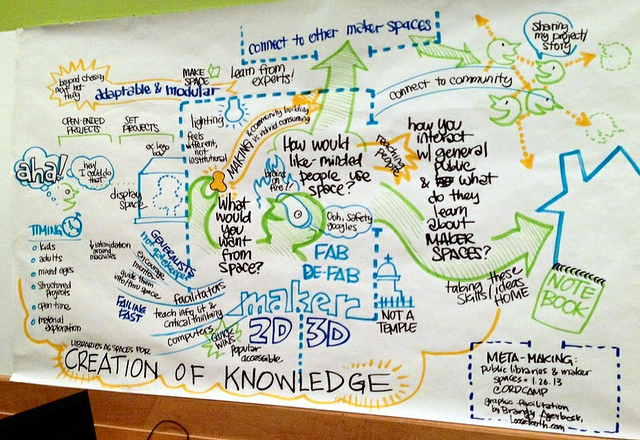 connect to other maker spaces
sharing
my project/
story
beyond chasing
next hot
thing
adaptable & modular
MAKE
SPACE
learn from
experts!
connect to community
OPEN-ENDED
PROJECTS
SET
PROJECTS
lighting
feels
different,
not
institutional
MAKING
& community building
vs. individual consuming
How would
like-minded
people use
space?
reaching
people
how you
interact
w/ general
public
& what
do they
learn
about
MAKER
SPACES?
aha!
hey!
I could do
that.
or lego
display
space
brains
on
fire!!
What
would
you
want
from
space?
Ooh, safety
goggles
FAB
DE-FAB
TIMING
kids
adults
mixed ages
structured
projects
open time
material
exploration
intimidation
around
machines
GENERALISTS
not gatekeeper
encourage
mentors
guide them
into the space
FAILING
FAST
facilitators
teach info. lit &
critical thinking
computers
QUICK
WINS
popular
accessible
maker
2D 3D
NOT A
TEMPLE
taking these
skills/ideas
HOME
NOTE
BOOK
LIBRARIES AS SPACES FOR
CREATION OF KNOWLEDGE
META-MAKING:
public libraries & maker
spaces • 1.26.13
@ORDCAMP
graphic facilitation
by Brandy Agerbeck,
Loosetooth.com